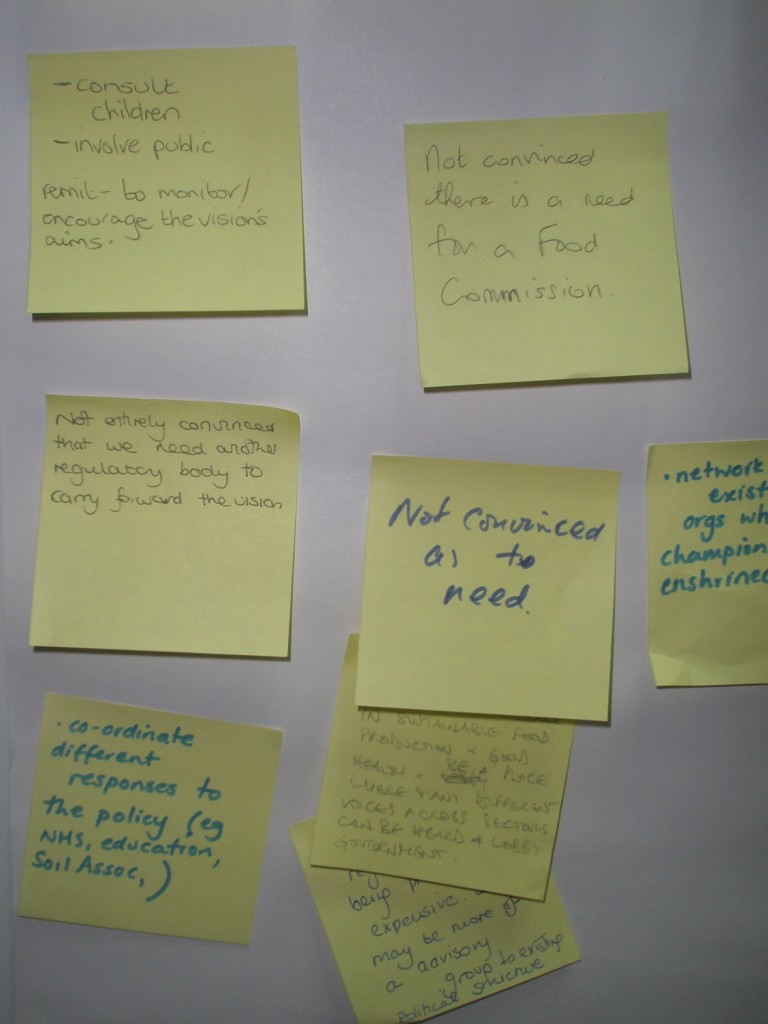 - consult
children
- involve public
remit - to monitor/
encourage the vision's
aims.
Not convinced
there is a need
for a Food
Commission.
Not entirely convinced
that we need another
regulatory body to
carry forward the vision
Not convinced
as to
need.
• network
exist
orgs wh
champion
enshrined
• co-ordinate
different
responses to
the policy (eg
NHS, education,
Soil Assoc,)
IN SUSTAINABLE FOOD
PRODUCTION + GOOD
HEALTH + BE A PLACE
WHERE MANY DIFFERENT
VOICES ACROSS SECTORS
CAN BE HEARD & LOBBY
GOVERNMENT.
being
expensive.
may be more of
a advisory
group to existing
political structure